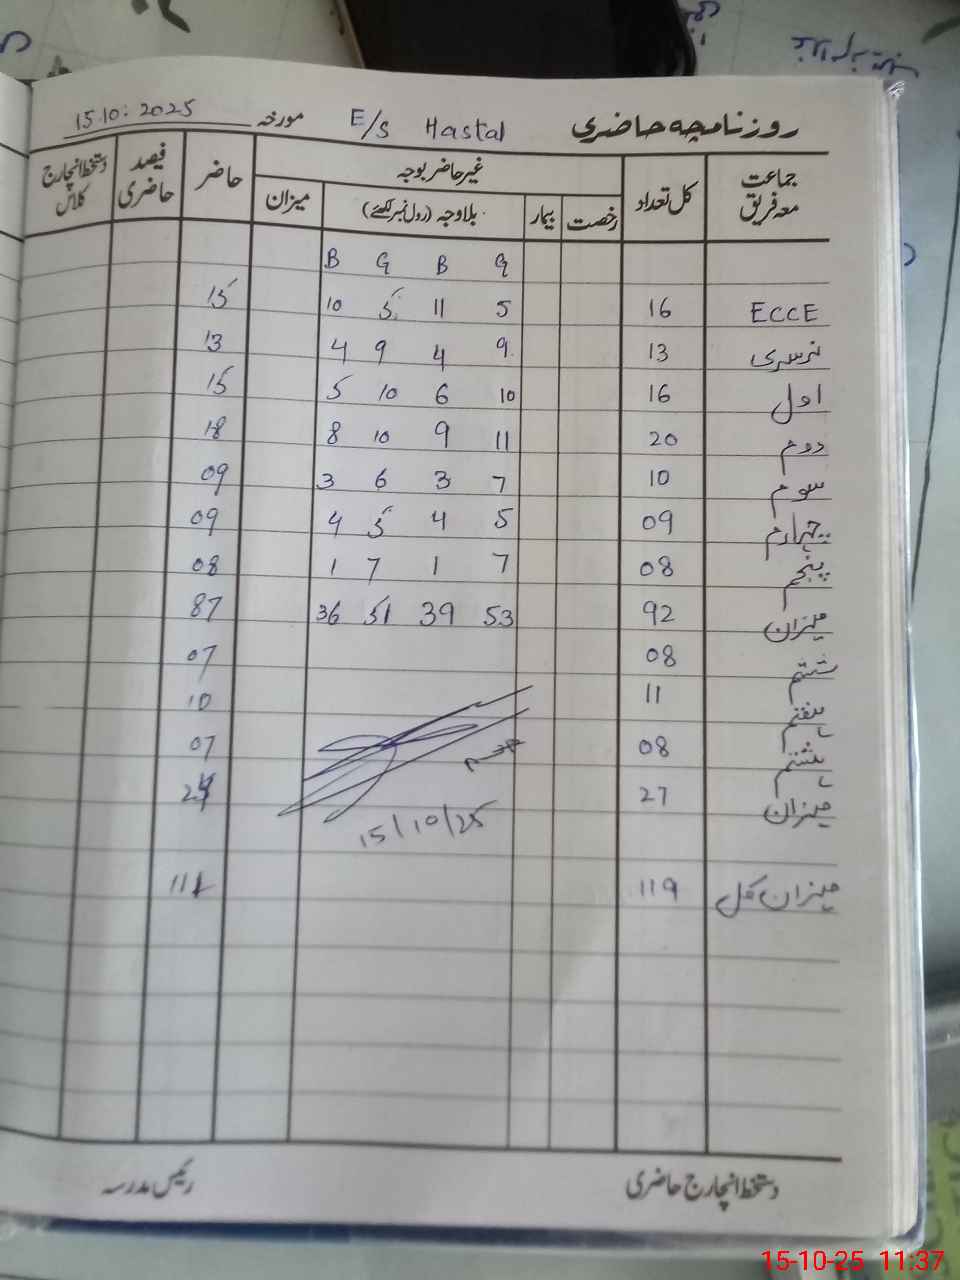 روزنامچہ حاضری E/S Hastal مورخہ 15.10:2025
جماعت معہ فریق کل تعداد غیر حاضر بوجہ حاضر فیصد حاضری دستخط انچارج کلاس
رخصت بیمار بلاوجہ (رول نمبر لکھئے) میزان
B G B G
ECCE 16 5 11 5 10 15
نرسری 13 9 4 9 4 13
اول 16 10 6 10 5 15
دوم 20 11 9 10 8 18
سوم 10 7 3 6 3 09
چہارم 09 5 4 5 4 09
پنجم 08 7 1 7 1 08
میزان 92 53 39 51 36 87
ششم 08 07
ہفتم 11 10
ہشتم 08 07
میزان 27 24
15/10/25
میزان کل 119 111
دستخط انچارج حاضری رئیس مدرسہ
15-10-25 11:37